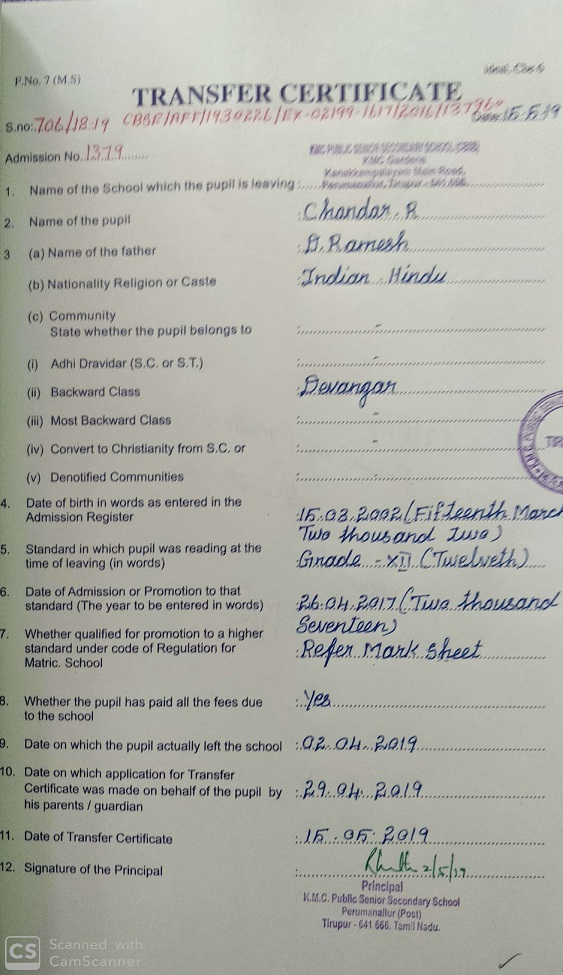 F.No. 7 (M.S)
TRANSFER CERTIFICATE
S.no: 706/18-19 CBSE/AFF/1930226/EX-02199-1617/2016/13796 Date: 15.5.19
Admission No. 1379
KMC PUBLIC SENIOR SECONDARY SCHOOL (CBSE)
KMC Gardens
Main Road,
1. Name of the School which the pupil is leaving : Perumanallur, Tirupur - 641 666.
2. Name of the pupil : Chandar. R
3 (a) Name of the father : D. Ramesh
(b) Nationality Religion or Caste : Indian Hindu
(c) Community
State whether the pupil belongs to : -
(i) Adhi Dravidar (S.C. or S.T.) : -
(ii) Backward Class : Devangar
(iii) Most Backward Class : -
(iv) Convert to Christianity from S.C. or : -
(v) Denotified Communities : -
4. Date of birth in words as entered in the
Admission Register : 15.03.2002 (Fifteenth March
Two thousand Two)
5. Standard in which pupil was reading at the
time of leaving (in words) : Grade - XII (Twelveth)
6. Date of Admission or Promotion to that
standard (The year to be entered in words) : 26.04.2017 (Two thousand
Seventeen)
7. Whether qualified for promotion to a higher
standard under code of Regulation for : Refer Mark Sheet
Matric. School
8. Whether the pupil has paid all the fees due : Yes
to the school
9. Date on which the pupil actually left the school : 02.04.2019
10. Date on which application for Transfer
Certificate was made on behalf of the pupil by : 29.04.2019
his parents / guardian
11. Date of Transfer Certificate : 15.05.2019
12. Signature of the Principal : 2/5/19
Principal
K.M.C. Public Senior Secondary School
Perumanallur (Post)
Tirupur - 641 666. Tamil Nadu.
CS Scanned with
CamScanner